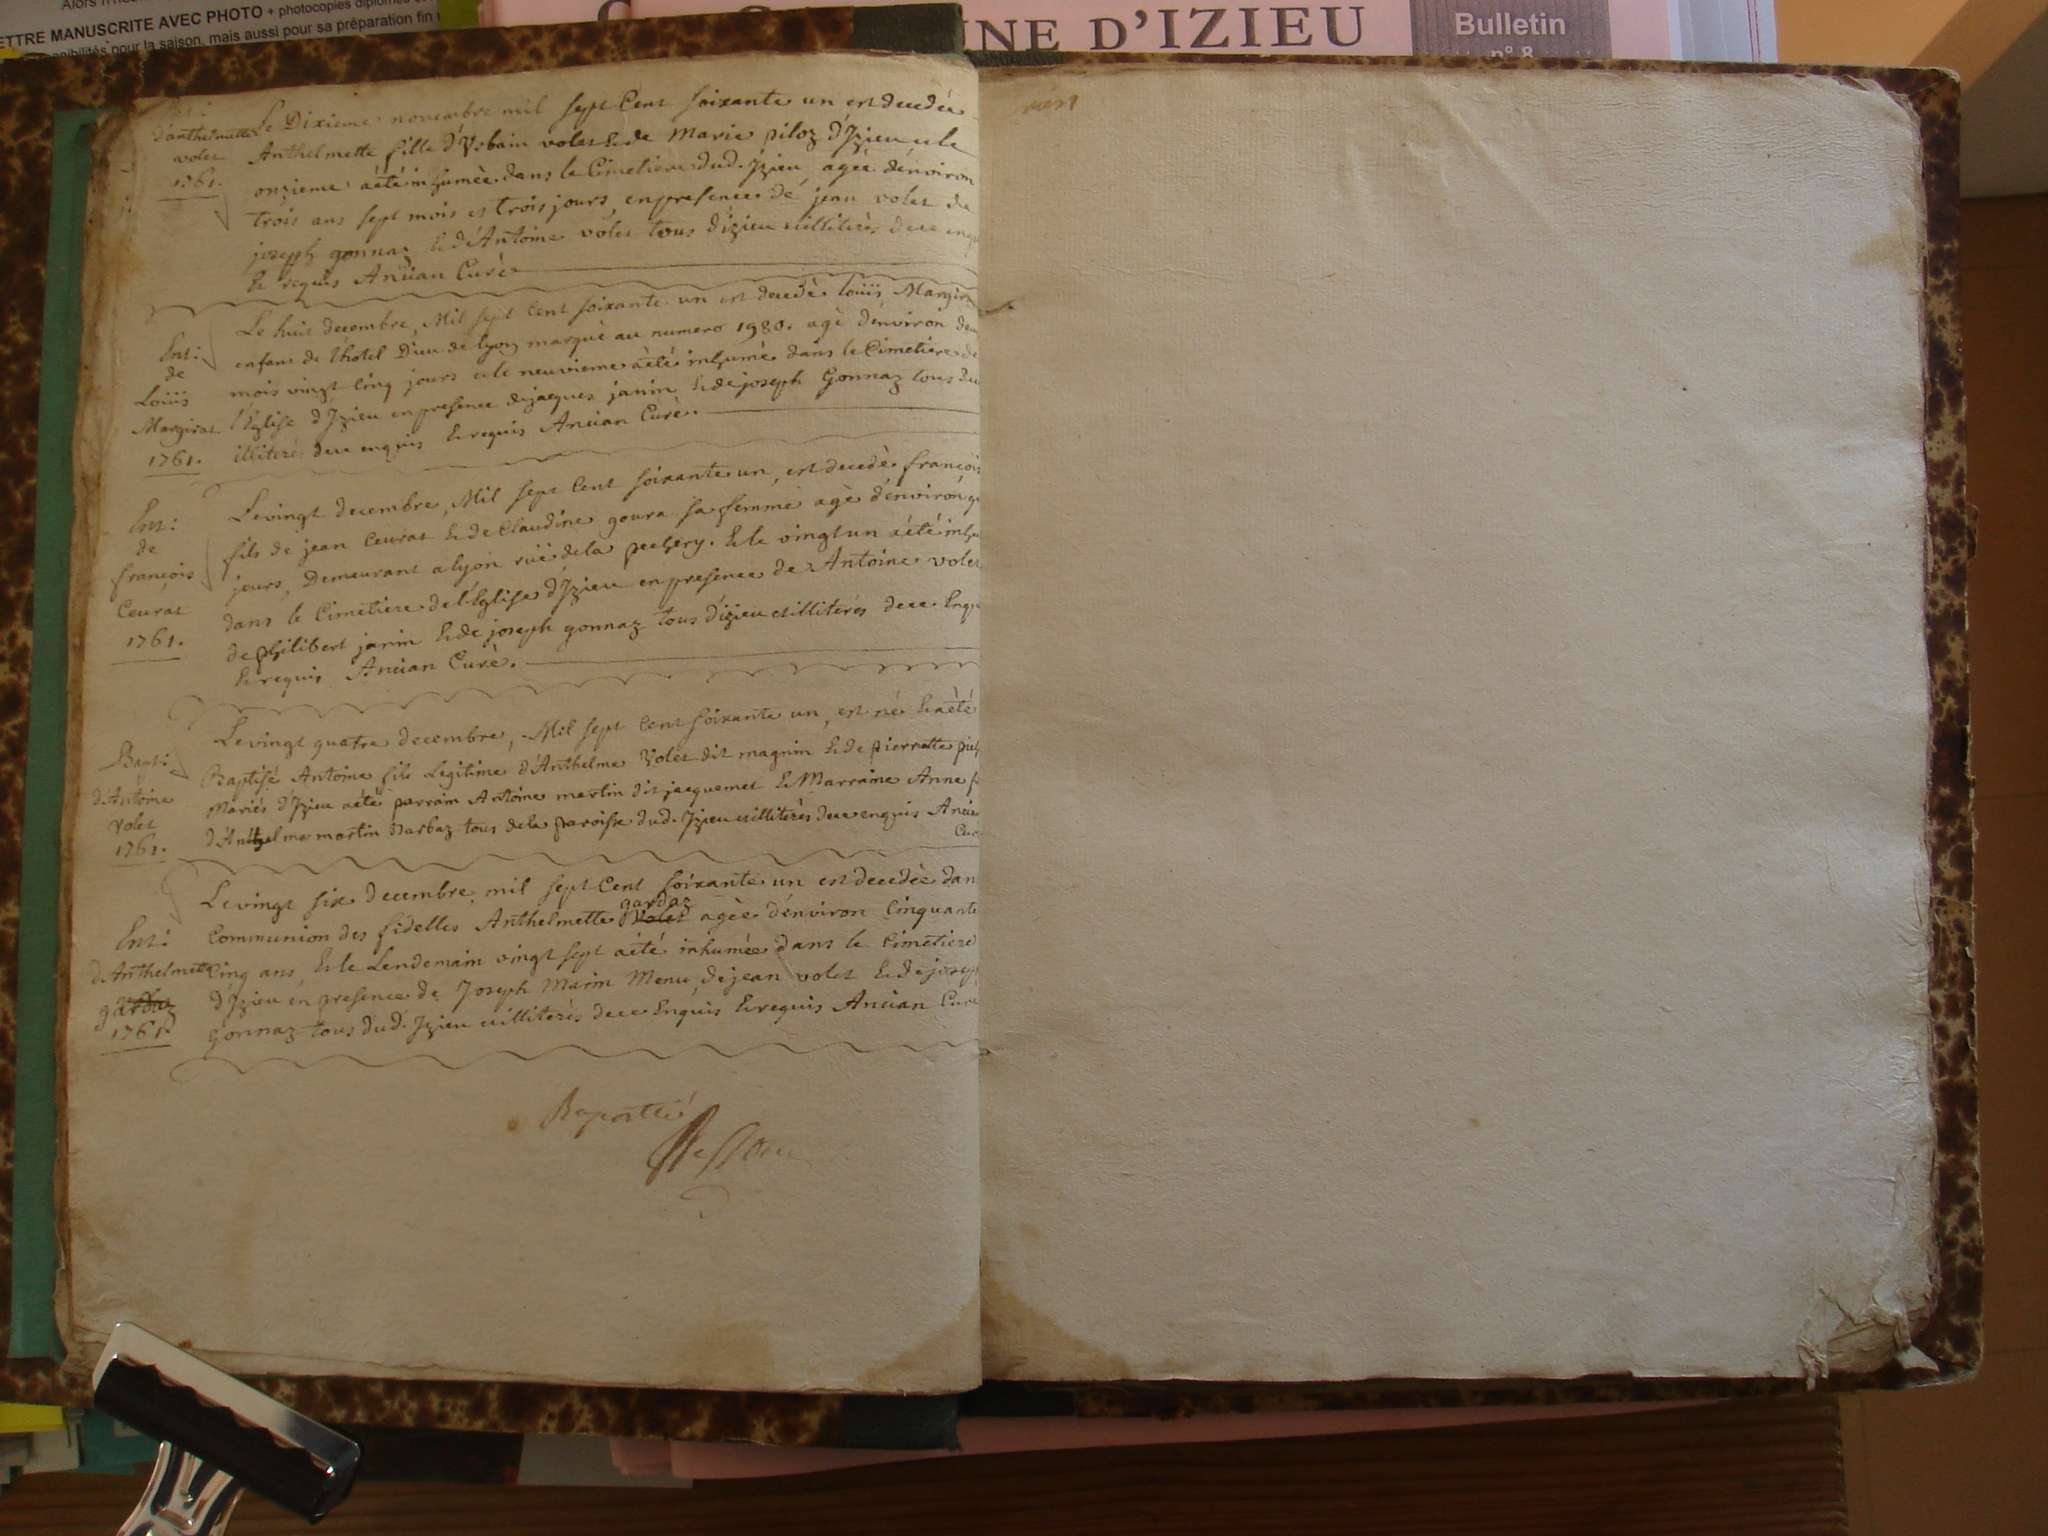 ETTRE MANUSCRITE AVEC PHOTO + photocopies diplômes
pour la saison, mais aussi pour sa préparation fin
NE D'IZIEU
Bulletin
n° 8
Ent:
d'anthelmette
volet
1761.
Le Dixieme novembre mil sept Cent soixante un est decedèe
Anthelmette fille d'Urbain volet & de Marie piloz d'Izieu e le
onzieme aété inhumèe dans le Cimetiere dud. Izieu, agèe d'environ
trois ans sept mois et trois jours, en presence de jean volet de
joseph gonnaz & d'Antoine volet tous d'izieu illiterès de ce enq
& requis Ancian Curè
Ent:
de
Loüis
Margirat
1761.
Le huit decembre, Mil sept Cent soixante un est decedè loüis Margir
enfant de l'hotel Dieu de lyon marqué au numero 1980. agè d'environ deu
mois vingt Cinq jours e le neuvieme aèté inhumè dans le Cimetiere de
l'Eglise d'Izieu en presence de jacques janin & de joseph Gonnaz tous du
illiterés de ce enquis & requis Ancian Curè.
Ent:
de
françois
Ceurat
1761.
Le vingt decembre, Mil sept Cent soixante un, est decedè françois
fils de jean Ceurat & de Claudine goura sa femme agè d'environ
jours, Demeurant a lyon rüe de la pechery. & le vingt un aété inhu
dans le Cimetiere de l'Eglise d'Izieu en presence de Antoine volet
de philibert janin & de joseph gonnaz tous d'izieu illiterés de ce Enqu
& requis Ancian Curè.
Bapt:
d'Antoine
Volet
1761.
Le vingt quatre decembre, Mil sept Cent soixante un, est né & aèté
Baptisé Antoine fils Legitime d'Anthelme Volet dit magnin & de pierrette
Mariés d'Izieu aété parrain Antoine martin dit jacquemet & Marraine Anne
d'Anthelme martin barbaz tous de la paroisse dud. Izieu illiterés de ce enquis Ancian
Cur
Ent:
d'Anthelmette
gardaz
1761.
Le vingt six decembre mil sept Cent soixante un est decedèe dan
gardaz
Communion des fidelles Anthelmette Volet agèe d'environ Cinquante
Cinq ans, & le Lendemain vingt sept aété inhumèe dans le Cimetiere
d'Izieu en presence de Joseph Marin Menu, de jean volet & de josep
gonnaz tous dud. Izieu illiterés de ce Enquis & requis Ancian Curé
Raporté